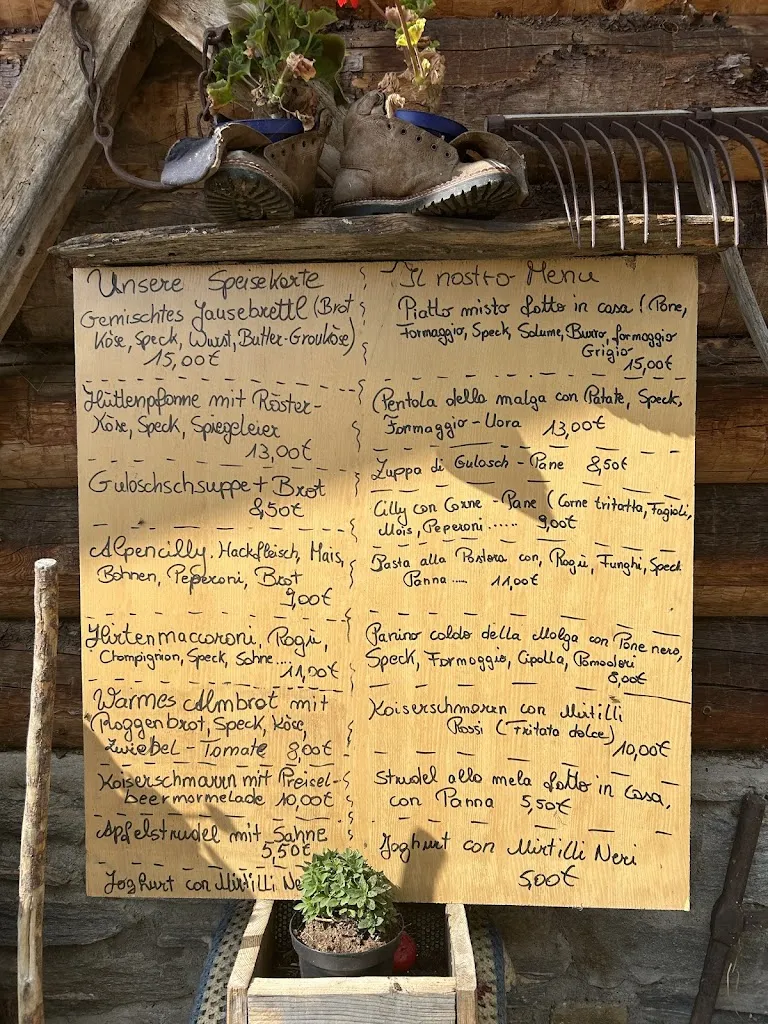 Unsere Speisekarte
Gemischtes Jausebrettl (Brot
Käse, Speck, Wurst, Butter-Graukäse)
15,00€
Hüttenpfanne mit Röster-
Käse, Speck, Spiegeleier
13,00€
Gulöschschsuppe + Brot
8,50€
Alpencilly. Hackfleisch, Mais,
Bohnen, Peperoni, Brot
9,00€
Hirtenmaccaroni, Ragù,
Champignion, Speck, Sahne....
11,00€
Warmes Almbrot mit
Roggenbrot, Speck, Käse,
Zwiebel - Tomate 8,00€
Kaiserschmarrn mit Preisel-
beermarmelade 10,00€
Apfelstrudel mit Sahne
5,50€
Joghurt con Mirtilli Ne
Il nostro Menu
Piatto misto fatto in casa! (Pane,
Formaggio, Speck, Salume, Burro, formaggio
Grigio
15,00€
Pentola della malga con Patate, Speck,
Formaggio - Uova 13,00€
Zuppa di Gulasch - Pane 8,50€
Cilly con Carne - Pane (Carne tritatta, Fagioli,
Mais, Peperoni...... 9,00€
Pasta alla Pastora con, Ragù, Funghi, Speck
Panna.... 11,00€
Panino caldo della Malga con Pane nero,
Speck, Formaggio, Cipolla, Pomodori
8,00€
Kaiserschmarrn con Mirtilli
Rossi (Fritata dolce)
10,00€
Strudel alla mela fatto in casa,
con Panna 5,50€
Joghurt con Mirtilli Neri
5,00€